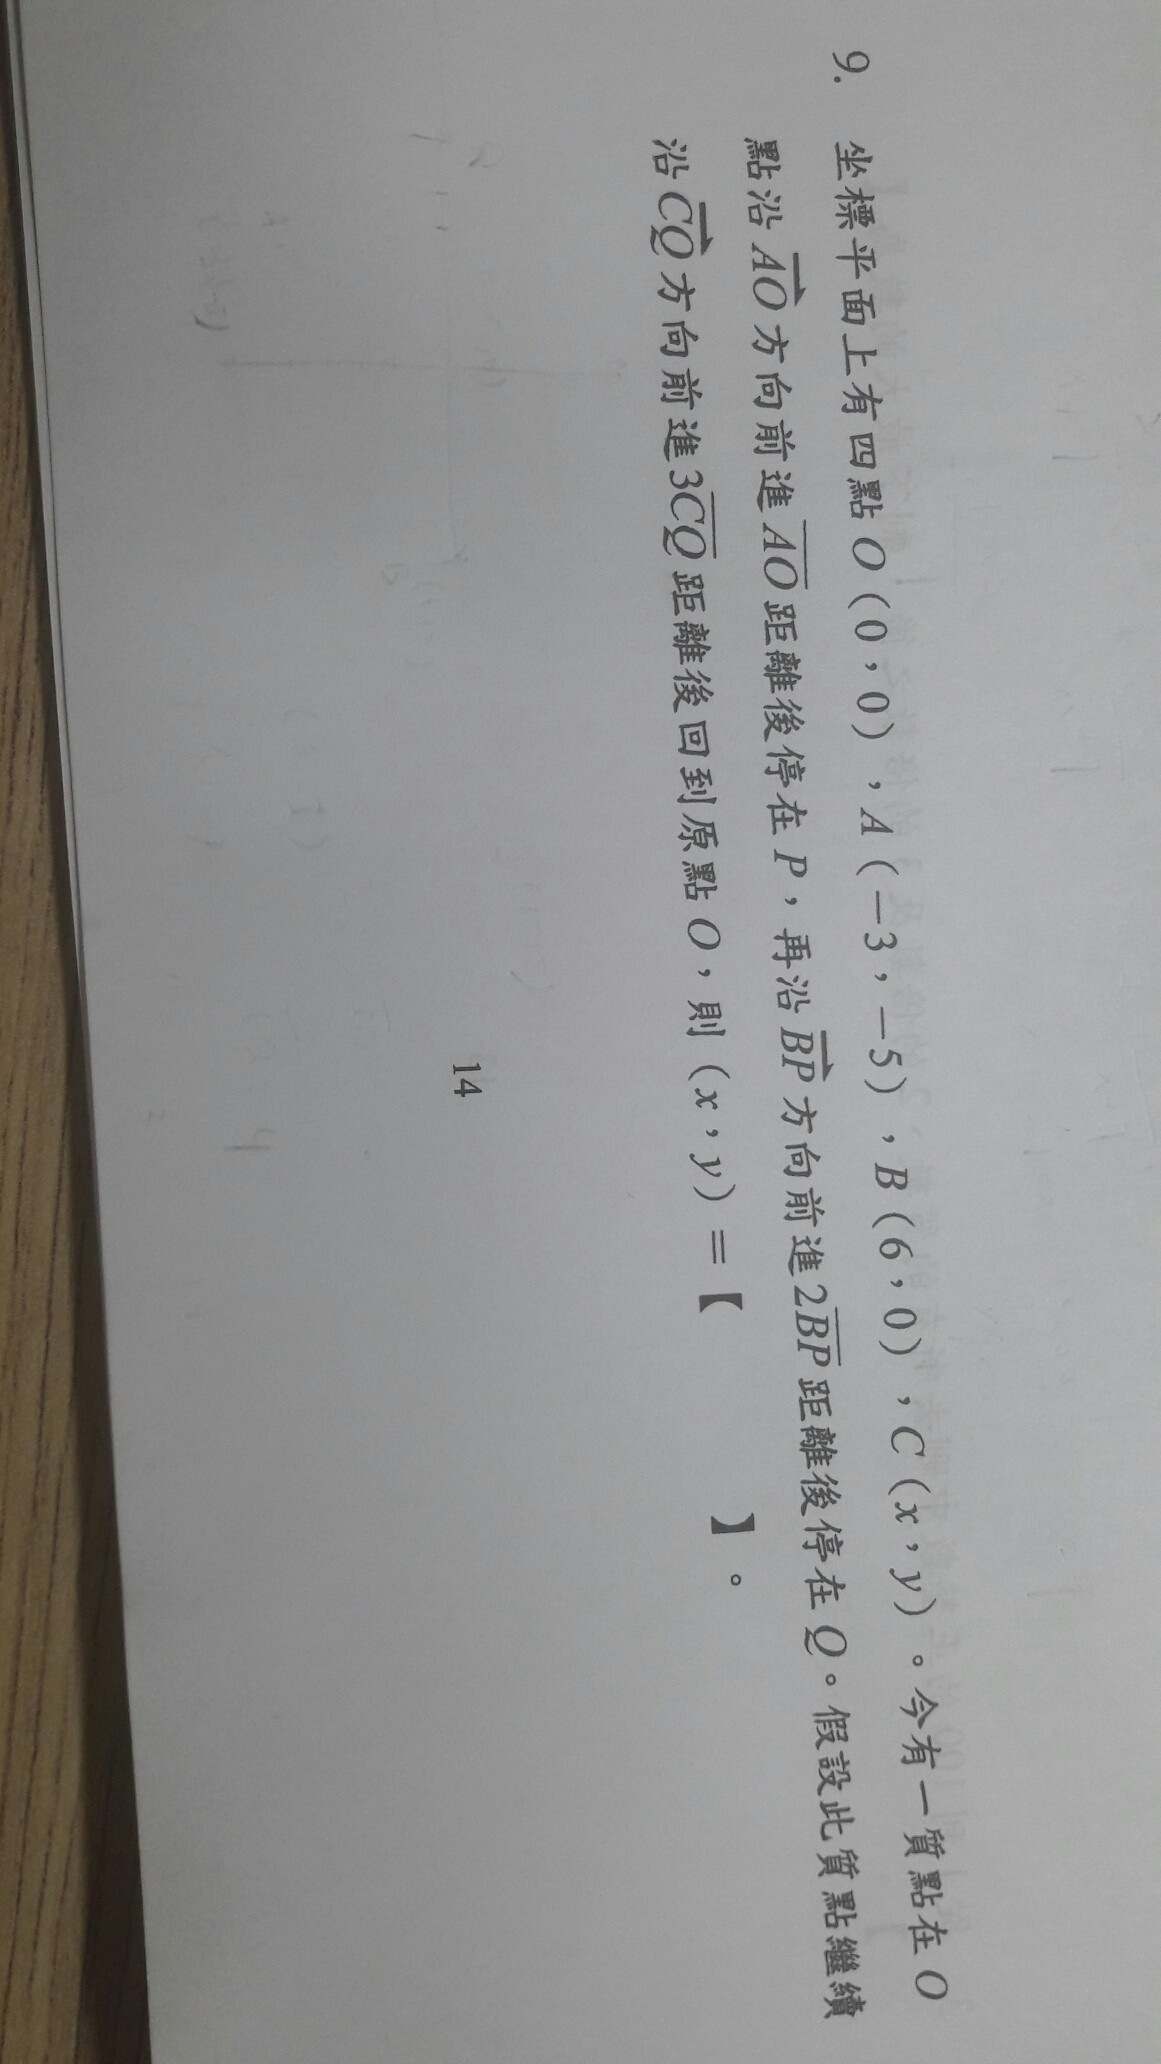 9. 坐標平面上有四點 O(0,0),A(-3,-5),B(6,0),C(x,y)。今有一質點在 O
點沿 AO 方向前進 AO 距離後停在 P,再沿 BP 方向前進 2BP 距離後停在 Q。假設此質點繼續
沿 CQ 方向前進 3CQ 距離後回到原點 O,則 (x,y)=【 】。
14